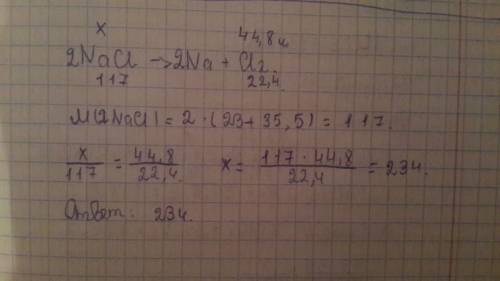 x 44,8 л.
2NaCl -> 2Na + Cl2.
117 22,4.
M(2NaCl) = 2 · (23 + 35,5) = 117.
x/117 = 44,8/22,4. x = 117 · 44,8/22,4 = 234.
Ответ: 234.